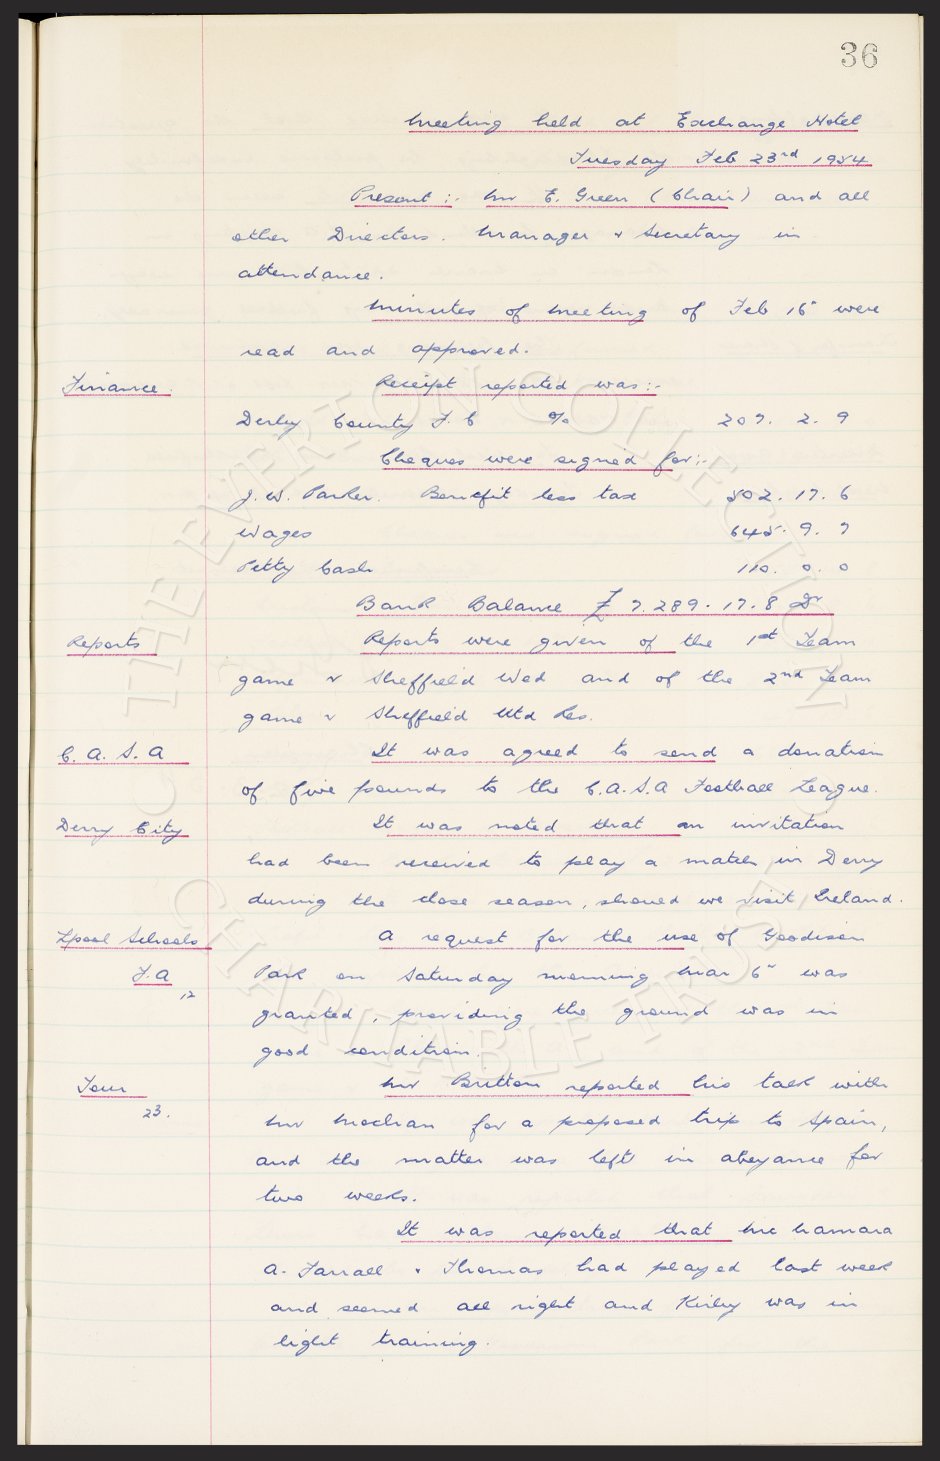 36
Meeting held at Exchange Hotel
Tuesday Feb 23rd 1954
Present :- Mr E. Green (Chair) and all
other Directors. Manager & Secretary in
attendance.
Minutes of Meeting of Feb 16" were
read and approved.
Finance.
Receipt reported was :-
Derby County F. C % 207. 2. 9
Cheques were signed for :-
J. W. Parker. Benefit less tax 502. 17. 6
Wages 645. 9. 7
Petty Cash 110. 0. 0
Bank Balance £7.289. 17. 8 Dr
Reports
Reports were given of the 1st Team
game v Sheffield Wed and of the 2nd Team
game v Sheffield Utd Res.
C. A. S. A
It was agreed to send a donation
of five pounds to the C.A.S.A Football League.
Derry City
It was noted that an invitation
had been received to play a match in Derry
during the close season, should we visit Ireland.
Lpool Schools
F. A
12
A request for the use of Goodison
Park on Saturday morning Mar 6" was
granted, providing the ground was in
good condition.
Tour
23.
Mr Britton reported his talk with
Mr Mochan for a proposed trip to Spain,
and the matter was left in abeyance for
two weeks.
It was reported that McNamara
A. Farrall & Thomas had played last week
and seemed all right and Kirby was in
light training.
© THE EVERTON COLLECTION
CHARITABLE TRUST